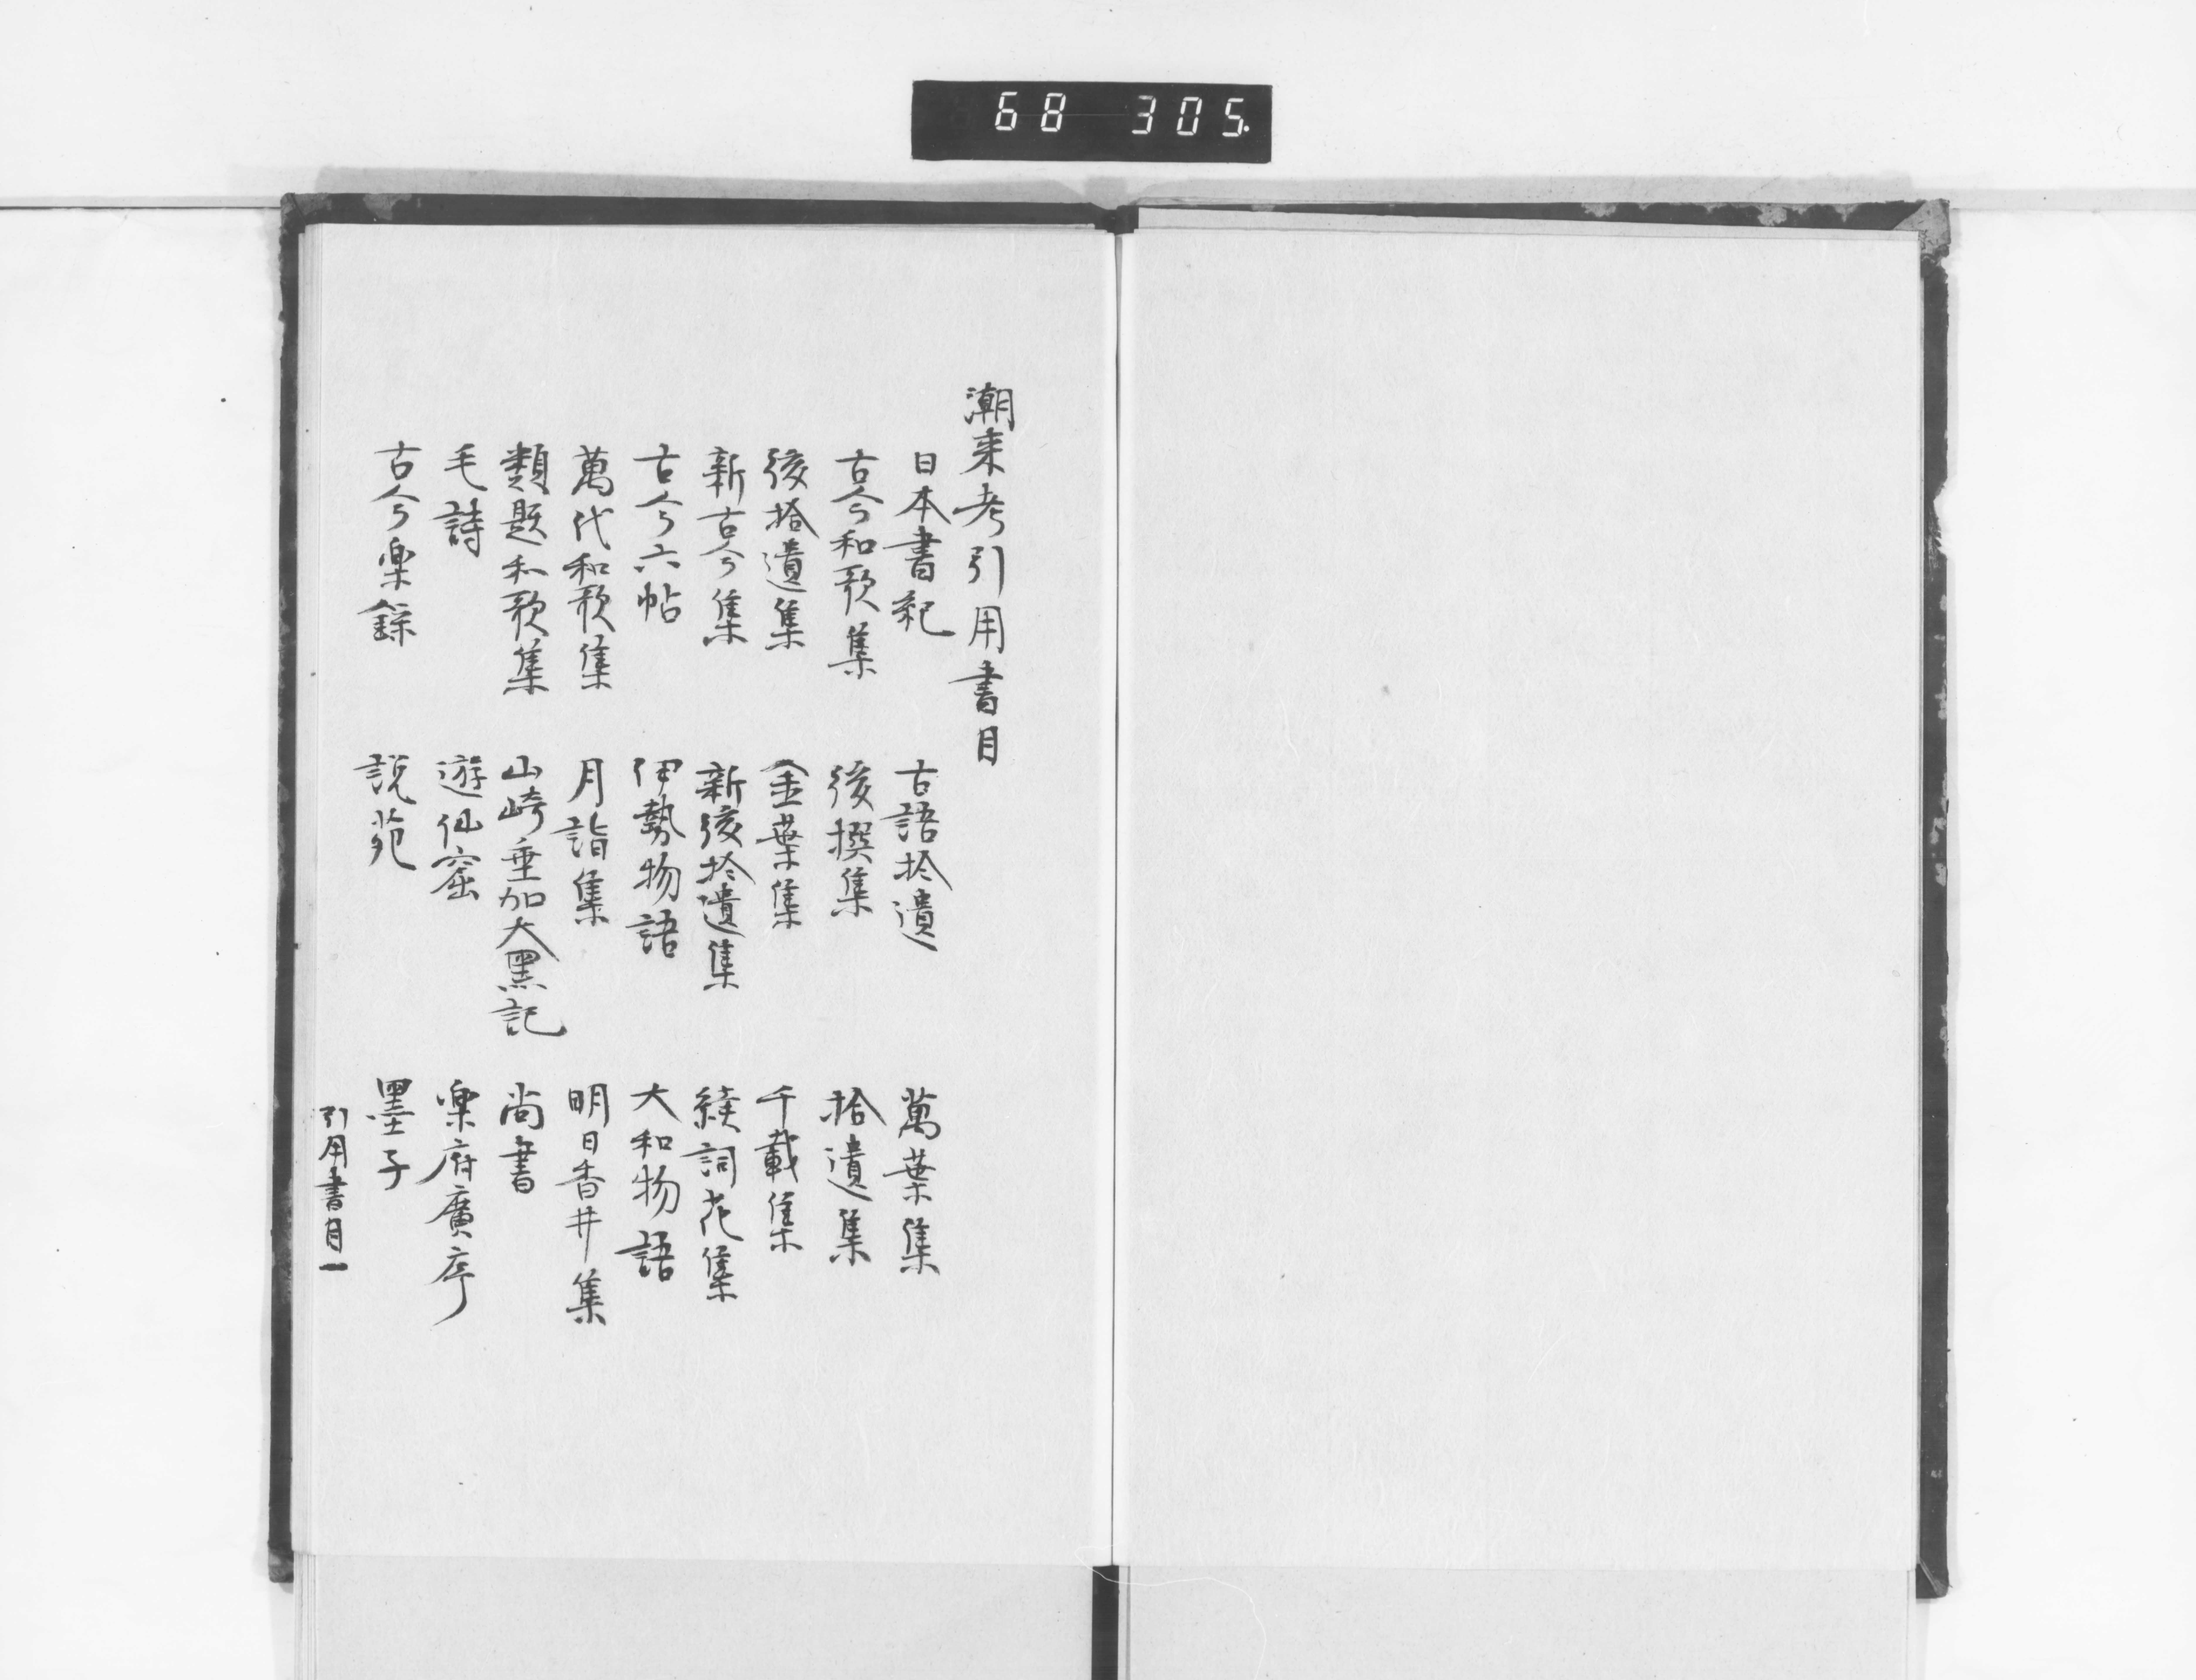 68 305.
潮来考引用書目
日本書紀 古語拾遺 萬葉集
古今和歌集 後撰集 拾遺集
後拾遺集 金葉集 千載集
新古今集 新後拾遺集 続詞花集
古今六帖 伊勢物語 大和物語
萬代和歌集 月詣集 明日香井集
類題和歌集 山崎垂加大黒記 尚書
毛詩 遊仙窟 楽府廣序
古今楽録 説苑 墨子
引用書目一